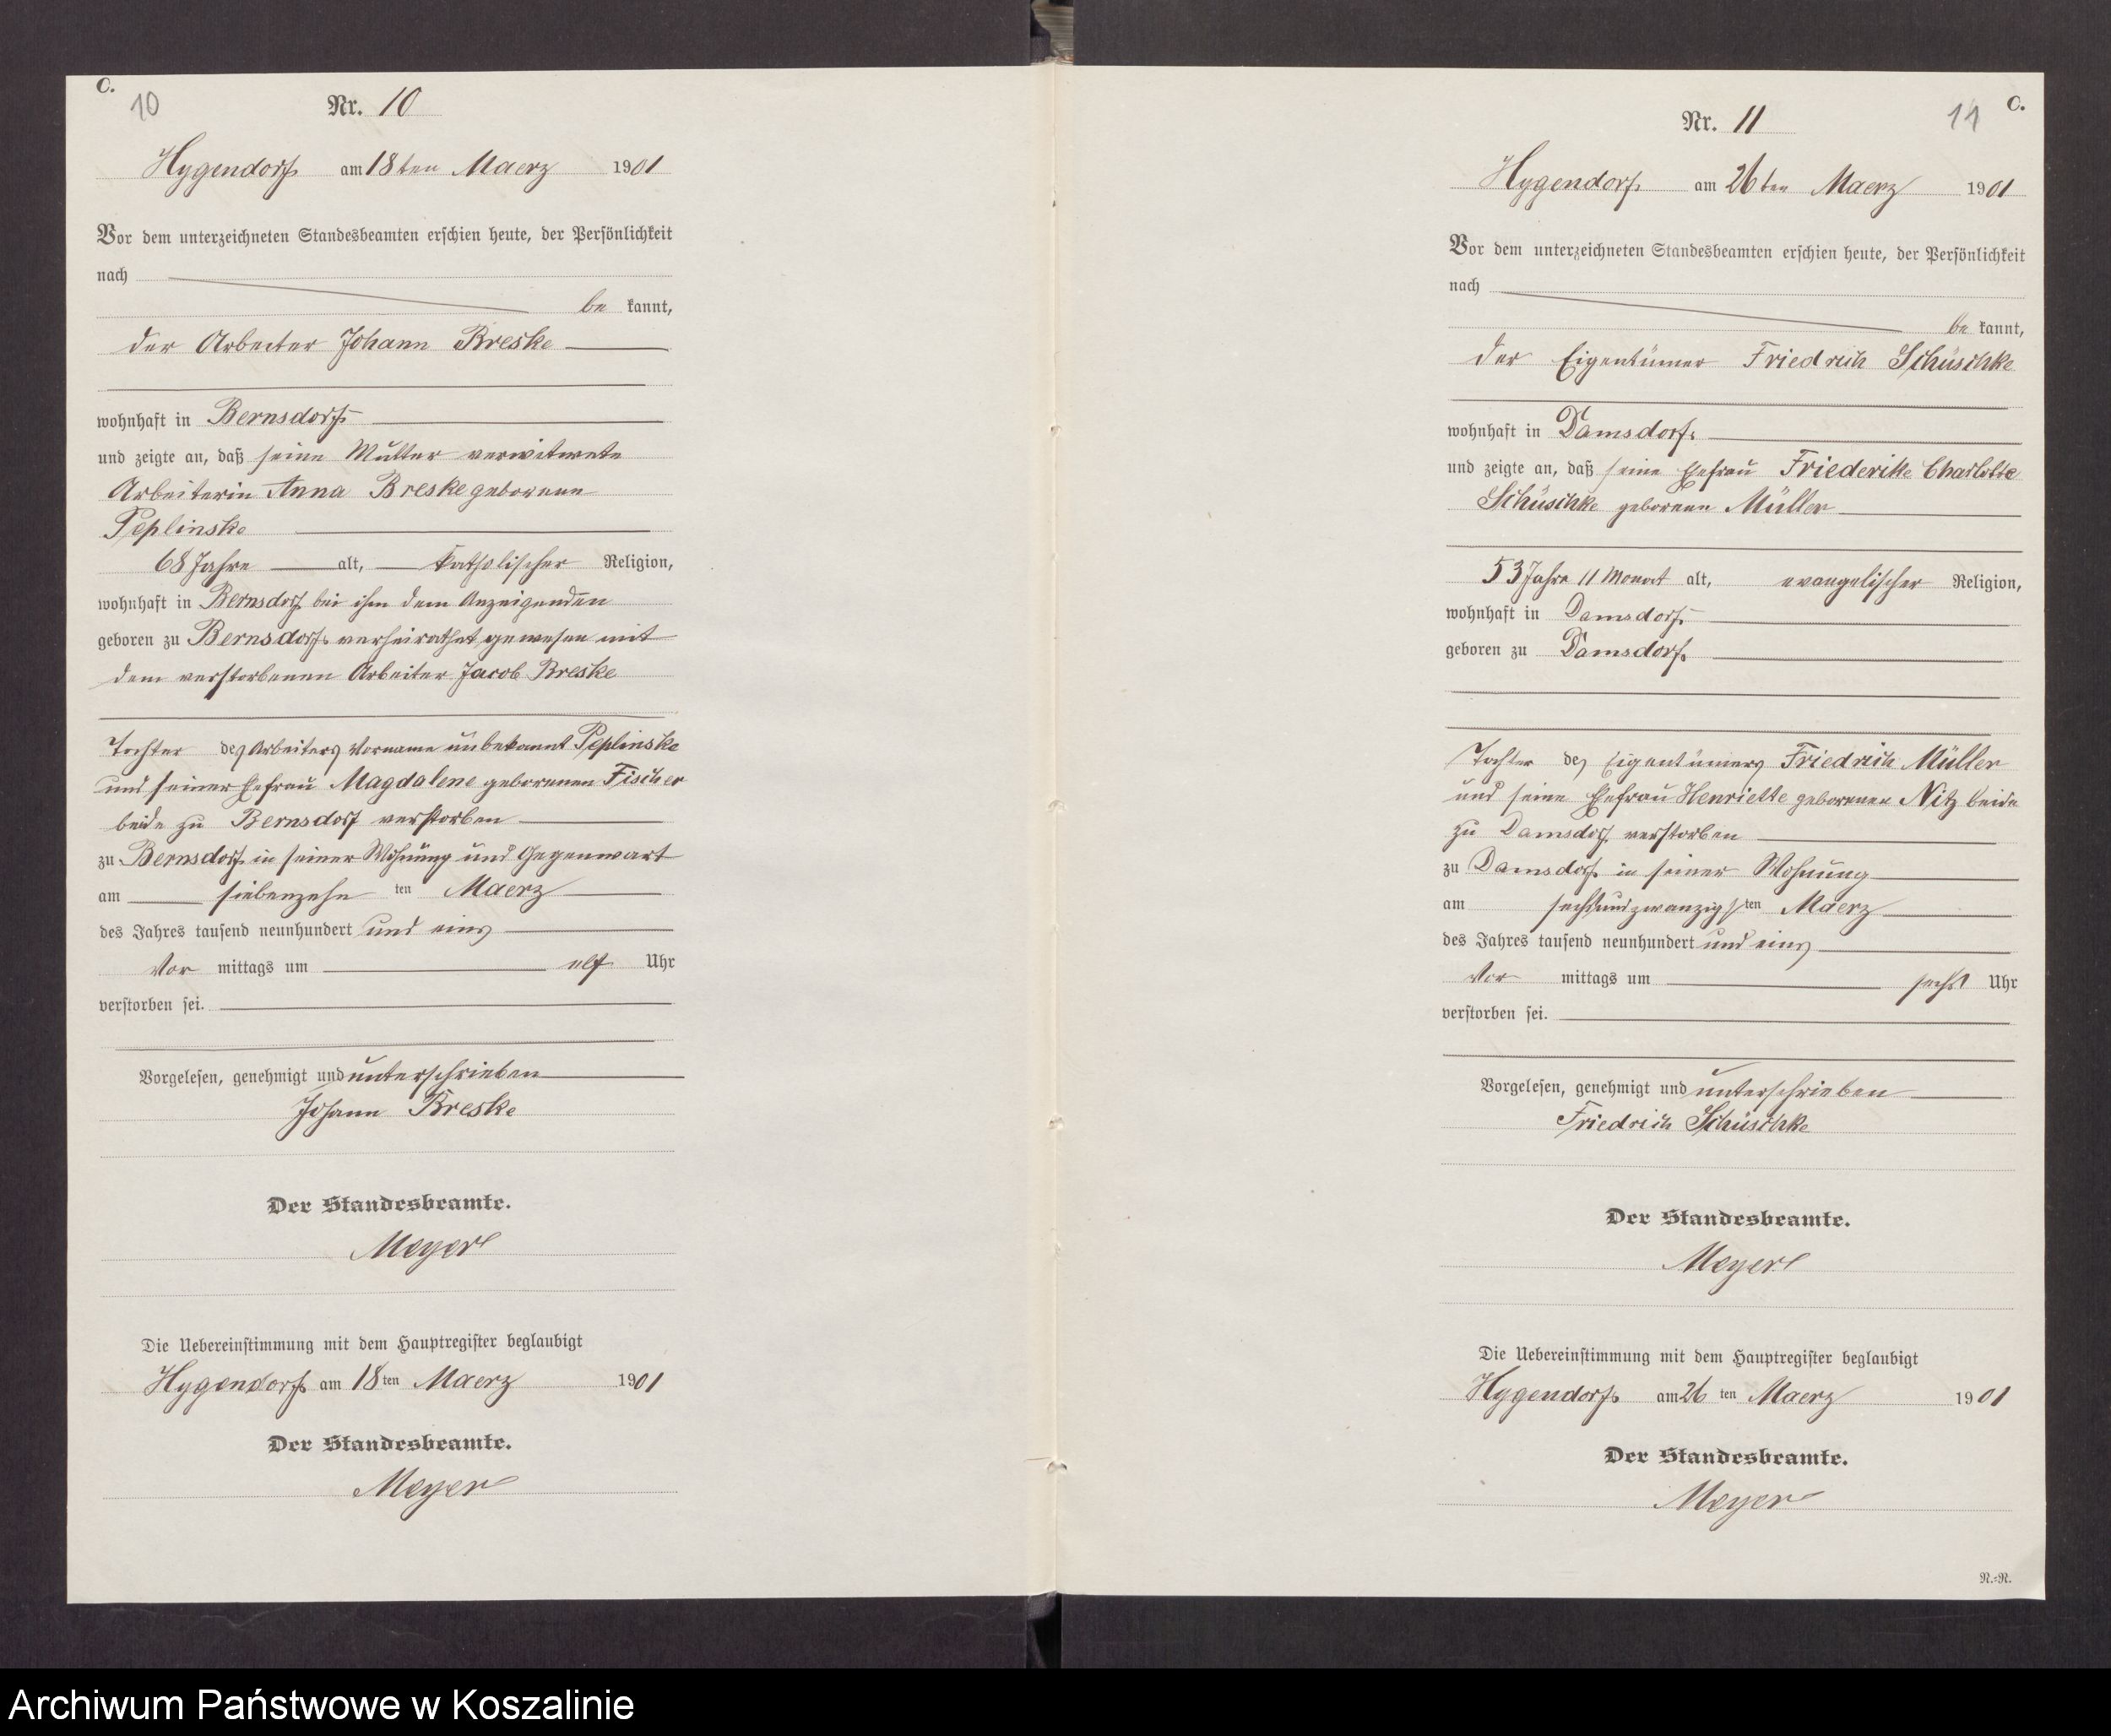 C.
10
Nr. 10
Hygendorf am 18ten Maerz 1901
Vor dem unterzeichneten Standesbeamten erschien heute, der Persönlichkeit
nach
be kannt,
der Arbeiter Johann Breske
wohnhaft in Bernsdorf
und zeigte an, daß seine Mutter verwitwete
Arbeiterin Anna Breske geborene
Peplinske
68 Jahre alt, katholischer Religion,
wohnhaft in Bernsdorf bei ihm dem Anzeigenden
geboren zu Bernsdorf verheirathet gewesen mit
dem verstorbenen Arbeiter Jacob Breske
Tochter des Arbeiters Vorname unbekannt Peplinske
und seiner Ehefrau Magdalene geborenen Fischer
beide zu Bernsdorf verstorben
zu Bernsdorf in seiner Wohnung und Gegenwart
am siebenzehn ten Maerz
des Jahres tausend neunhundert und eins
Vor mittags um elf Uhr
verstorben sei.
Vorgelesen, genehmigt und unterschrieben
Johann Breske
Der Standesbeamte.
Meyer
Die Uebereinstimmung mit dem Hauptregister beglaubigt
Hygendorf am 18ten Maerz 1901
Der Standesbeamte.
Meyer
C.
11
Nr. 11
Hygendorf am 26ten Maerz 1901
Vor dem unterzeichneten Standesbeamten erschien heute, der Persönlichkeit
nach
be kannt,
der Eigentümer Friedrich Schüschke
wohnhaft in Damsdorf
und zeigte an, daß seine Ehefrau Friederike Charlotte
Schüschke geborene Müller
53 Jahre 11 Monat alt, evangelischer Religion,
wohnhaft in Damsdorf
geboren zu Damsdorf
Tochter des Eigentümers Friedrich Müller
und seine Ehefrau Henriette geborenen Nitz beide
zu Damsdorf verstorben
zu Damsdorf in seiner Wohnung
am sechsundzwanzigsten Maerz
des Jahres tausend neunhundert und eins
Vor mittags um sechs Uhr
verstorben sei.
Vorgelesen, genehmigt und unterschrieben
Friedrich Schüschke
Der Standesbeamte.
Meyer
Die Uebereinstimmung mit dem Hauptregister beglaubigt
Hygendorf am 26 ten Maerz 1901
Der Standesbeamte.
Meyer
N.=N.
Archiwum Państwowe w Koszalinie